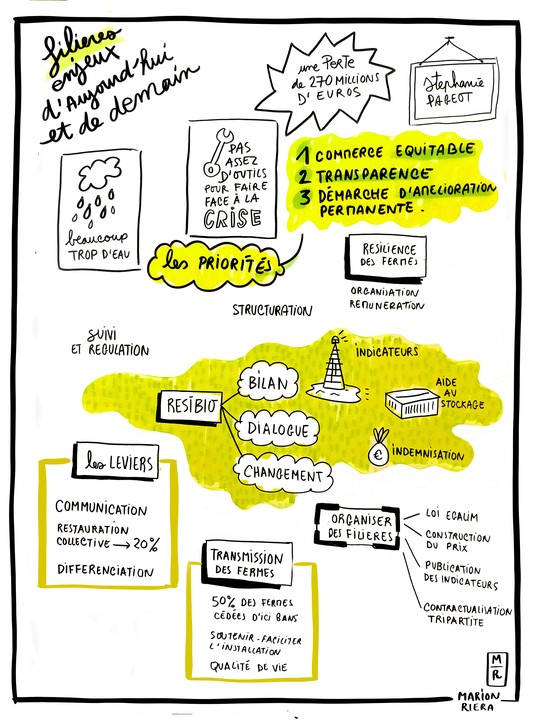 filières
enjeux
d'Aujourd'hui
et de demain
une PERTE
de 270 MILLIONS
D'EUROS
Stephanie
PAGEOT
beaucoup
TROP D'EAU
PAS
ASSEZ
D'OUTILS
POUR FAIRE
FACE À LA
CRISE
1 COMMERCE EQUITABLE
2 TRANSPARENCE
3 DÉMARCHE D'AMELIORATION
PERMANENTE.
les PRIORITÉS
RESILIENCE
DES FERMES
ORGANISATION
REMUNERATION
STRUCTURATION
SUIVI
ET REGULATION
RESIBIO
BILAN
DIALOGUE
CHANGEMENT
INDICATEURS
AIDE
AU
STOCKAGE
€
INDEMNISATION
les LEVIERS
COMMUNICATION
RESTAURATION
COLLECTIVE → 20%
DIFFERENCIATION
TRANSMISSION
DES FERMES
50% DES FERMES
CÉDÉES D'ICI 8ANS
SOUTENIR-FACILITER
L'INSTALLATION
QUALITÉ DE VIE
ORGANISER
DES FILIERES
LOI EGALIM
CONSTRUCTION
DU PRIX
PUBLICATION
DES INDICATEURS
CONTRACTUALISATION
TRIPARTITE
M
R
MARION
RIERA